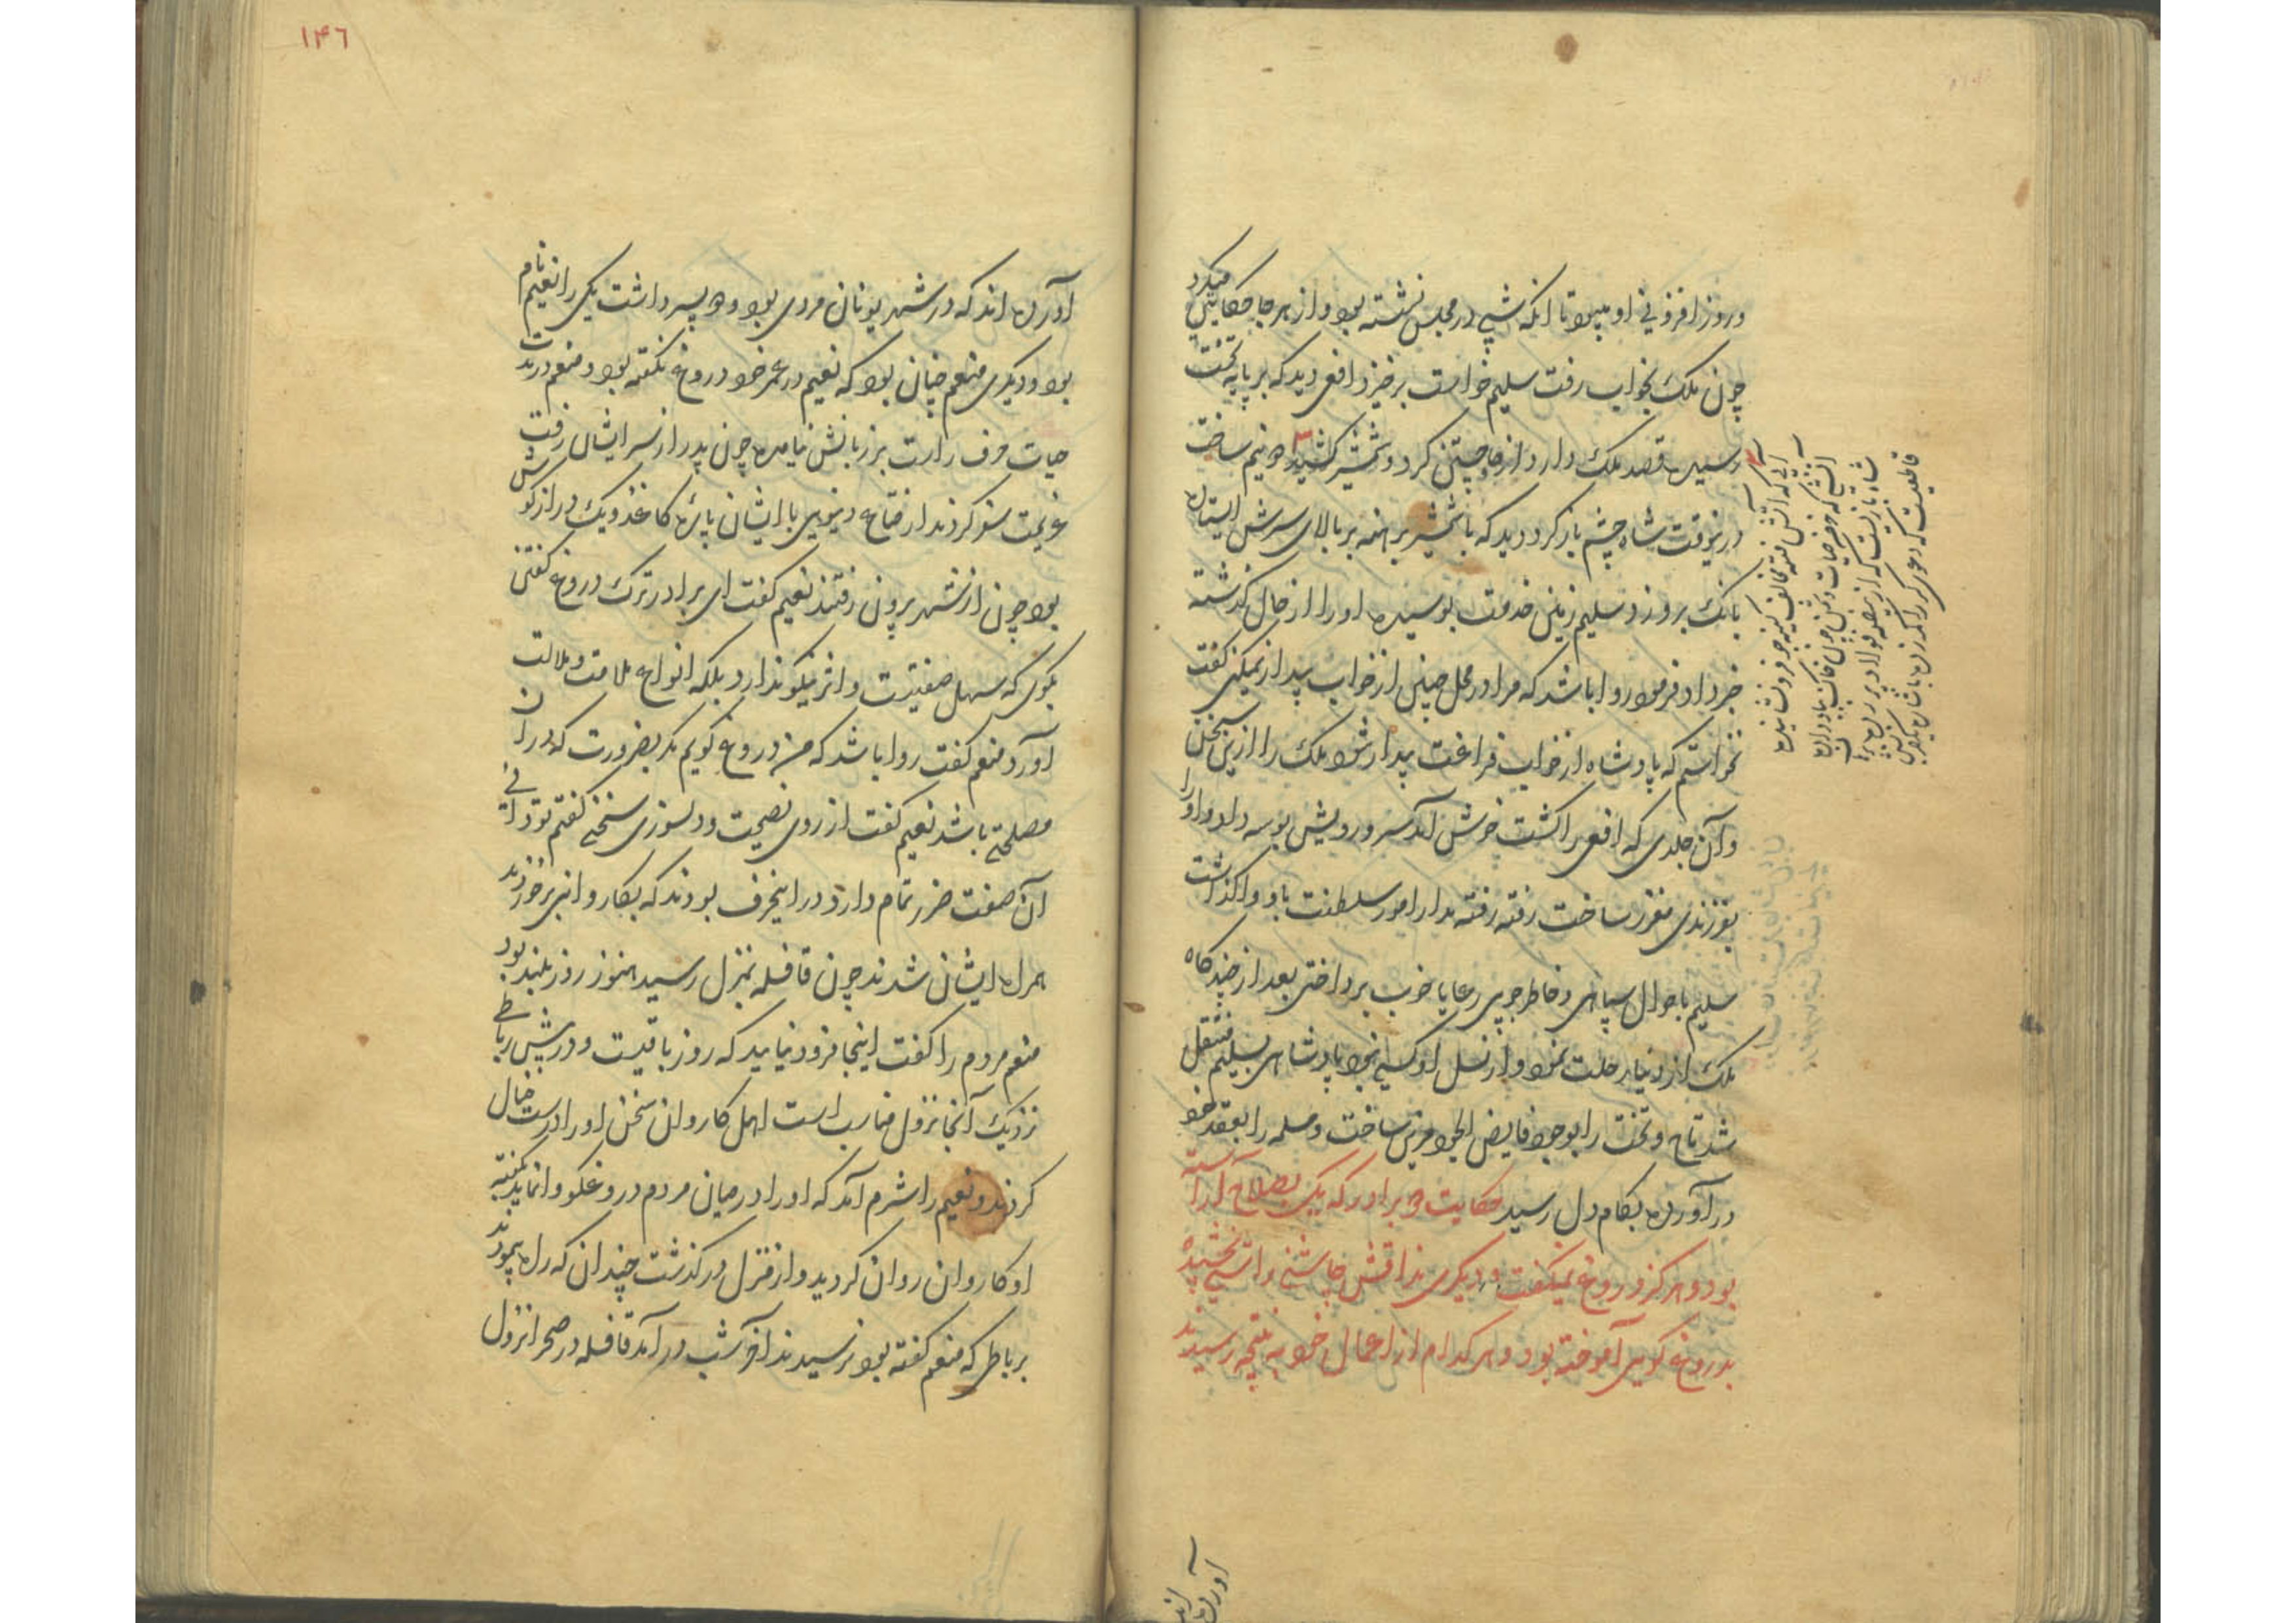 و روز افزونی او میبود تا انکه شبی در مجلس نشسته بود و از هر جا حکایتی میکرد
چون ملک بخواب رفت سلیم خواست برخیزد افعی دید که بر پایه تخت
رسیده قصد ملک دارد از جا جستن کرد و شمشیر کشیده دو نیم ساخت
درینوقت شاه چشم باز کرد دید که با شمشیر برهنه بر بالای سرش ایستاده
بانک برو زد سلیم زمین خدمت بوسیده او را از حال گذشته
خبر داد فرمود روا باشد که مرا در محل چنین از خواب بیدار نمیکنی گفت
نخواستم که پادشاه از خواب فراغت بیدار شود ملک را ازین سخن
و آن جلدی که افعی را کشت خوش آمد سر و رویش بوسه داد و او را
بفرزندی مقرر ساخت رفته رفته مدار امور سلطنت باو واگذاشت
سلیم باحوال سپاهی و خاطرجویی رعایا خوب پرداختی بعد از چند کاه
ملک از دنیا رحلت نمود و از نسل او کسی نبود پادشاهی بسلیم منتقل
شد تاج و تخت را بوجود فایض الجود مزین ساخت و سلمه را بعقد خود
در آورده بکام دل رسید حکایت دو برادر که یکی بصلاح آراسته
بود و هرکز دروغ نمیکفت و دیکری مذاقش چاشنی راستی نچشیده
بدروغ کویی آموخته بود و هر کدام از اعمال خود به نتیجه رسیدند
آورده اند
۱۴۶
آورده اند که در شهر یونان مردی بود و دو پسر داشت یکی را نعیم نام
بود و دیکری منعم چنان بود که نعیم در عمر خود دروغ نکفته بود و منعم در مدت
حیات حرف راست بر زبانش نیامده چون پدر از سر ایشان رفت
عزیمت سفر کردند از متاع دنیوی با ایشان پاره کاغذ و یک درازکوش
بود چون از شهر برون رفتند نعیم کفت ای برادر ترک دروغ کفتن
بکوی که سهل صفتیست و اثر نیکو ندارد بلکه انواع ملامت و ملالت
آورد منعم کفت روا باشد که من دروغ کویم مکر بضرورت که در آن
مصلحتی باشد نعیم کفت از روی نصیحت و دلسوزی سخنی کفتم تو دانی
آن صفت ضرر تمام دارد در اینحرف بودند که بکاروانی برخوردند
همراه ایشان شدند چون قافله بمنزل رسید هنوز روز بلند بود
منعم مردم را کفت اینجا فرود نیایید که روز باقیست و در پیش رباطی
نزدیک آنجا نزول مناسب است اهل کاروان سخن او را درست خیال
کردند و نعیم را شرم آمد که او را در میان مردم دروغکو وانماید بکفته
او کاروان روان کردید و از منزل در کذشت چندان که راه پیمودند
برباطی که منعم کفته بود نرسیدند آخر شب در آمد قافله در صحرا نزول